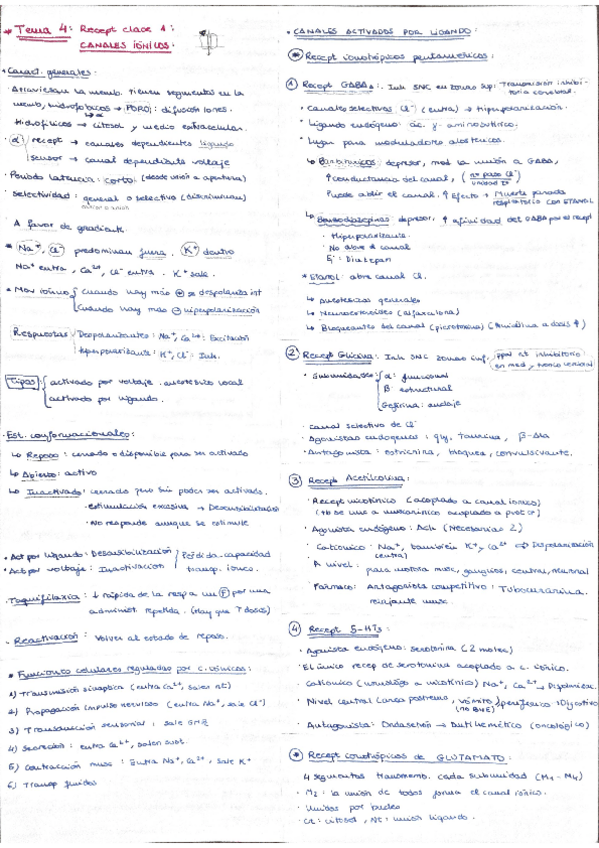 * Tema 4: Recept clase 1:
CANALES IÓNICOS:
• Caract. generales:
• Atraviesan la memb. tienen segmentos en la
memb, hidrofóbicos → PORO: difusiones.
Hidrofílicos → citosol y medio extracelular.
recept → canales dependientes ligando
sensor → canal dependiente voltaje
• Periodo latencia: corto. (desde unión a apertura)
• Selectividad: general o selectivo (discriminan)
A favor de gradiente.
* Na+, Cl- predominan fuera. K+ dentro
Na+ entra, Ca2+, Cl- entra. K+ sale.
* Mov iónico cuando hay más ⊕ = despolarización
cuando hay más ⊖ = hiperpolarización
Respuestas Despolarizantes: Na+, Ca2+: Excitación
Hiperpolarizante: K+, Cl-: Inh.
Tipos: activado por voltaje. anestésico local
activado por ligando.
• Est. conformacionales:
↳ Reposo: cerrado o disponible para ser activado
↳ Abierto: activo
↳ Inactivado: cerrado pero sin poder ser activado.
• estimulación excesiva → Desensibilización
• No responde aunque se estimule
• Act por ligando: Desensibilización
• Act por voltaje: Inactivación
Pérdida capacidad
transp. iónico.
Taquifilaxia: ↓ rápida de la resp a un F por una
administ. repetida. (Hay que ↑ dosis)
• Reactivación: Volver al estado de reposo.
* Funciones celulares reguladas por c. iónicos:
1) Transmisión sináptica (entra Ca2+, salen nt)
2) Propagación impulso nervioso (entra Na+, sale Cl-)
3) Transducción sensorial: sale
4) Secreción: entra Ca2+, salen sust.
5) Contracción musc: Entra Na+, Ca2+, sale K+
6) Transp fluidos
• CANALES ACTIVADOS POR LIGANDO:
* Recept ionotrópicos pentaméricos:
① Recept GABAA: Inh SNC en zonas sup: Transmisión inhibitoria cerebral.
• canales selectivos Cl- (entra) → Hiperpolarización.
• Ligando endógeno: ác. γ-aminobutírico.
• Lugar para moduladores alostéricos.
↳ Barbitúricos: depresor, mod la unión a GABA,
↑ conductancia del canal,
Puede abrir el canal. ↑ Efecto → Muerte parada
respiratorio con ETANOL
↳ Benzodiazepinas: depresor, ↑ afinidad del GABA por el recept
• Hiperpolarizante.
• No abre el canal
Ej: Diazepam
* Etanol: abre canal Cl.
↳ Anestésicos generales
↳ Neuroesteroides (alfaxalona)
↳ Bloqueantes del canal (picrotoxina) (Amiodina a dosis ↑)
② Recept Glicina: Inh SNC zonas inf. ppal nt inhibitorio
en med, y tronco
• Subunidades: α: funcional
β: estructural
Gefirina: anclaje
• canal selectivo de Cl-
• Agonistas endógeno: gly, taurina, β-Ala
• Antagonista: estricnina, bloquea, convulsivante.
③ Recept Acetilcolina:
• Recept nicotínico (acoplado a canal iónico)
(tb se une a muscarínico acoplado a prot G)
• Agonista endógeno: Ach (Necesarias 2)
• Catiónico: Na+, también K+ y Ca2+ ⇒ Despolarización
(entra)
A nivel: placa motora musc, ganglios, central, neuronal
• Fármaco: Antagonista competitivo: Tubocurarina.
relajante musc.
④ Recept 5-HT3:
• Agonista endógeno: serotonina (2 moles)
• El único recep de serotonina acoplado a c. iónico.
• Catiónico (homólogo a nicotínico) Na+, Ca2+ → Dspolarizac.
• Nivel central (area postrema, vómito) periférico: Digestivo
(no BHE)
• Antagonista: Ondasetrón → Antiemético (oncológico)
* Recept ionotrópicos de GLUTAMATO:
4 segmentos transmemb. cada subunidad (M1 - M4)
• M2: la unión de todos forma el canal iónico.
• Unidos por bucles
• Ct: citosol, Nt: unión ligando.